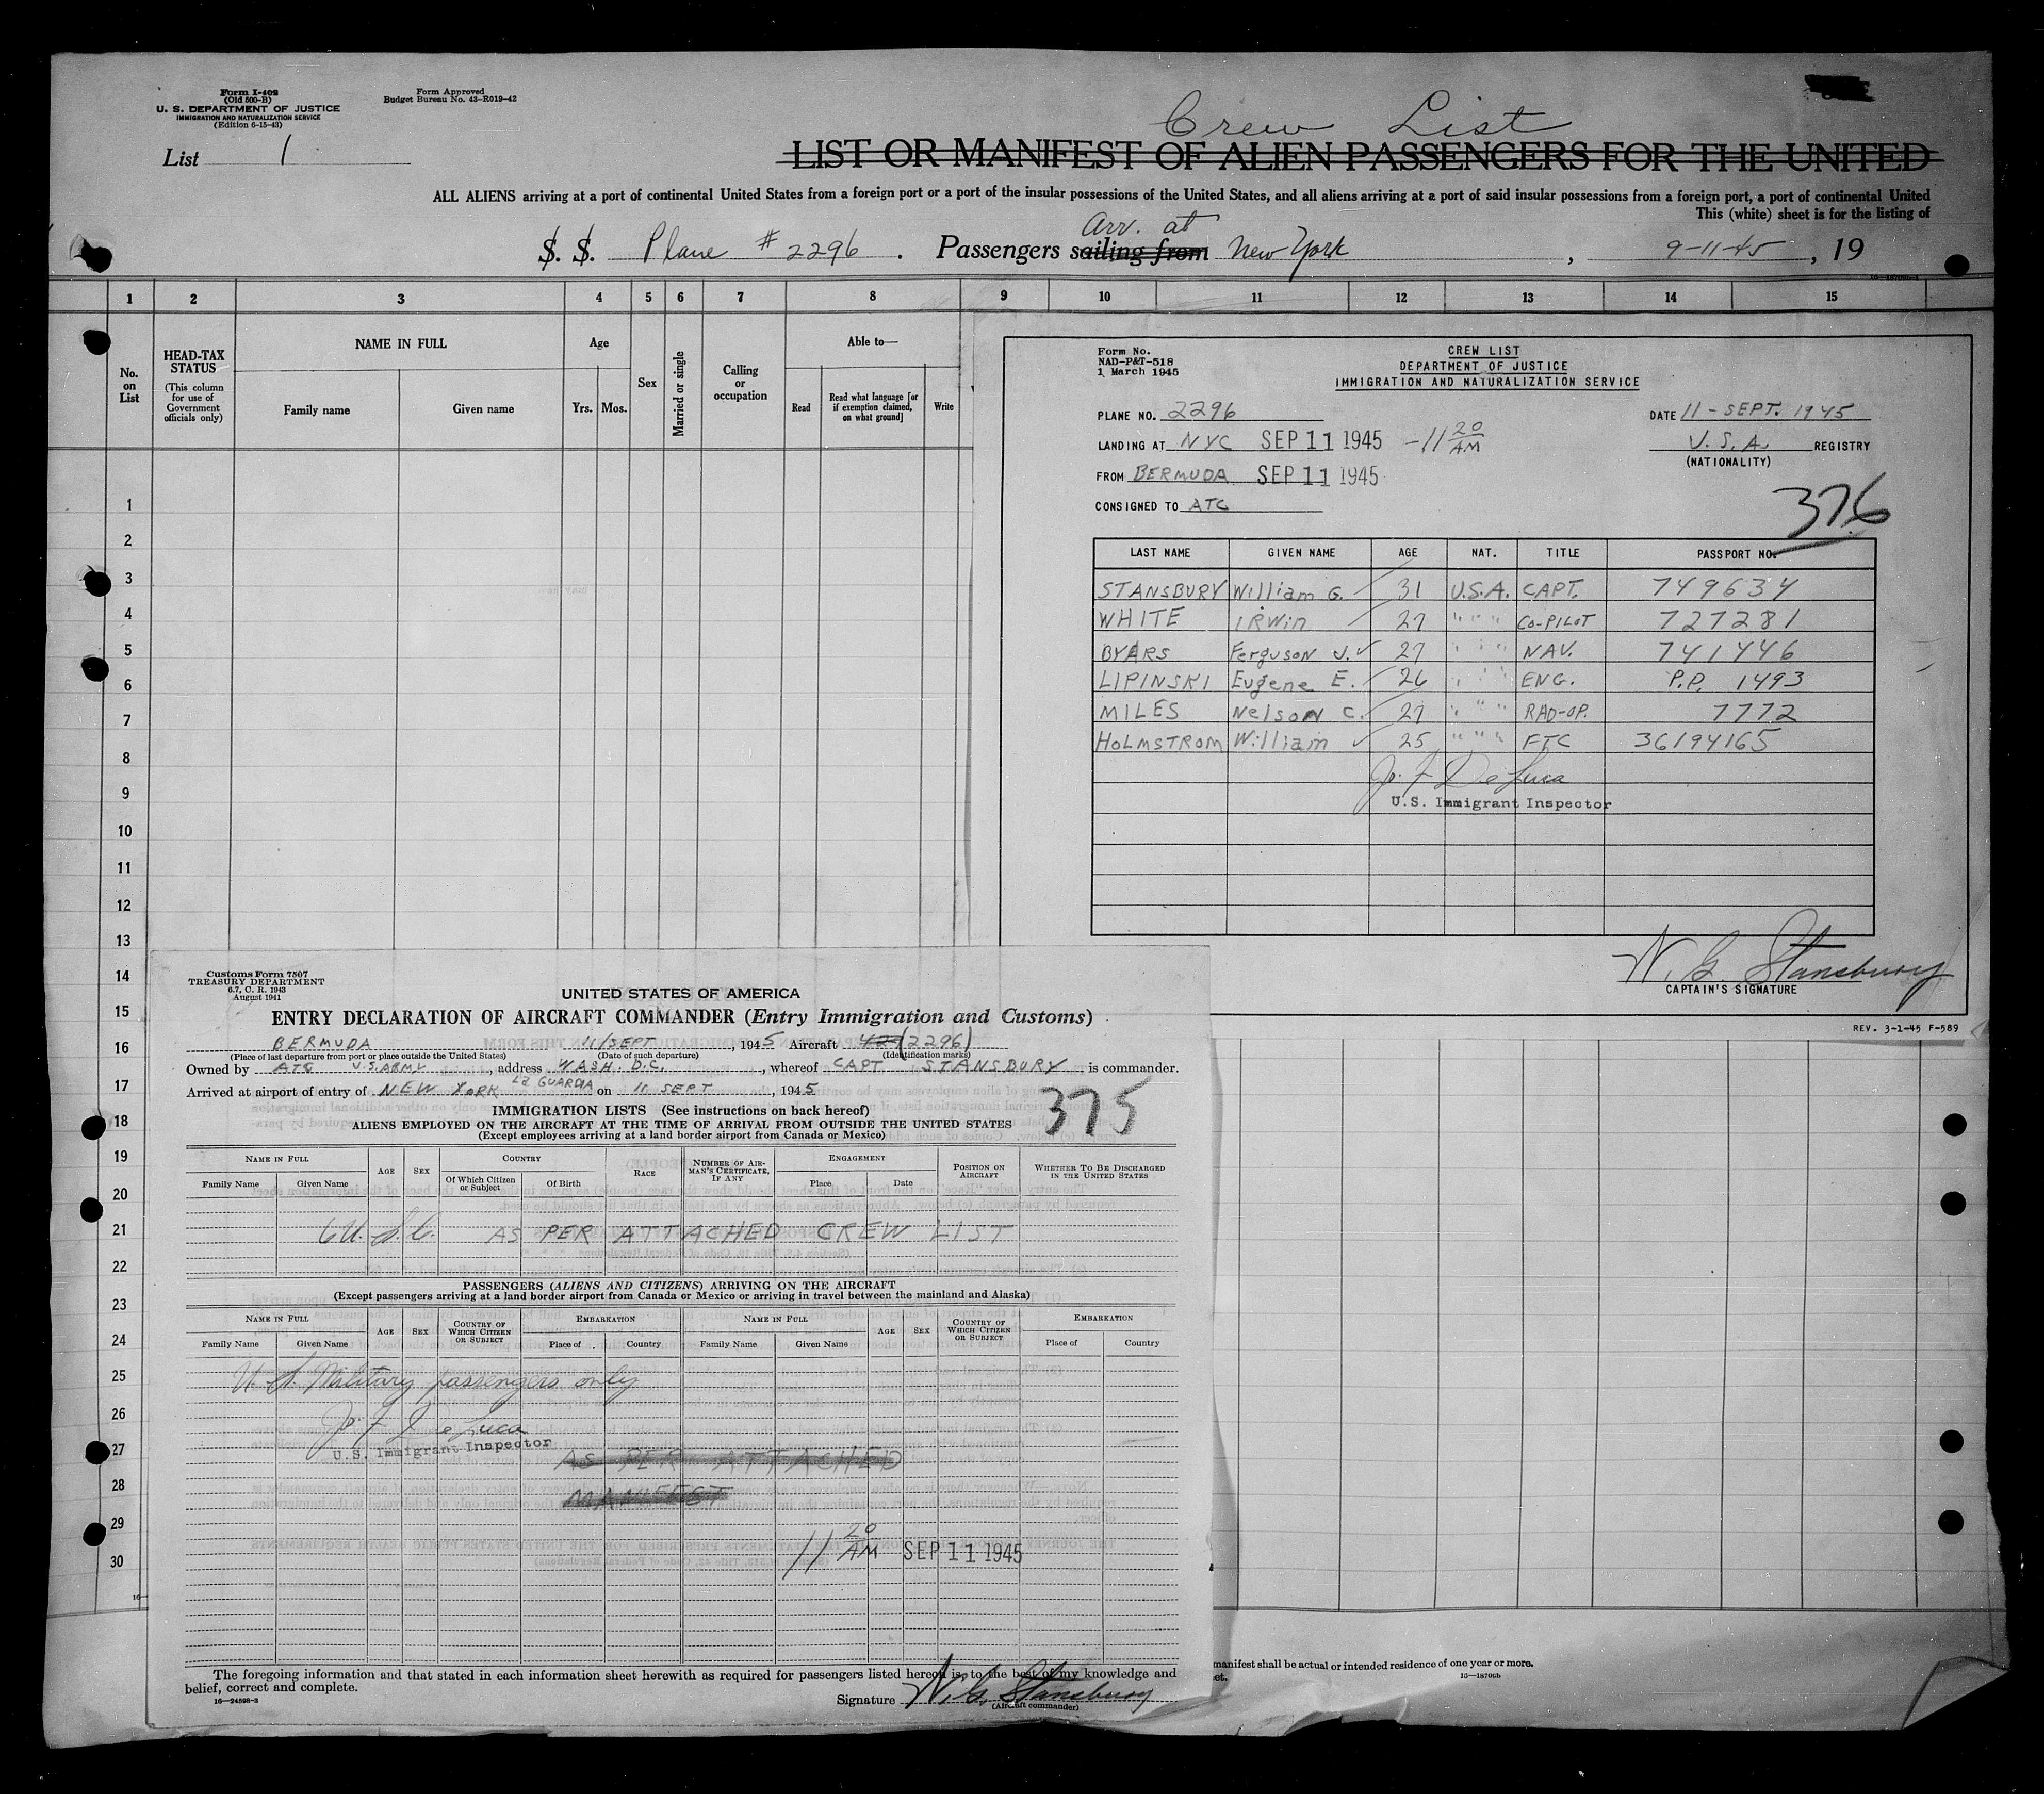 Form I-402
(Old 500-B)
U. S. DEPARTMENT OF JUSTICE
IMMIGRATION AND NATURALIZATION SERVICE
(Edition 6-15-43)
Form Approved
Budget Bureau No. 43-R019-42
List 1
Crew List
LIST OR MANIFEST OF ALIEN PASSENGERS FOR THE UNITED
ALL ALIENS arriving at a port of continental United States from a foreign port or a port of the insular possessions of the United States, and all aliens arriving at a port of said insular possessions from a foreign port, a port of continental United
This (white) sheet is for the listing of
Arr. at
S. S. Plane # 2296 . Passengers sailing from New York , 9-11-45 , 19
1 2 3 4 5 6 7 8 9 10 11 12 13 14 15
No. on List
HEAD-TAX STATUS
(This column for use of Government officials only)
NAME IN FULL
Family name
Given name
Age
Yrs.
Mos.
Sex
Married or single
Calling or occupation
Able to—
Read
Read what language [or if exemption claimed, on what ground]
Write
1
2
3
4
5
6
7
8
9
10
11
12
13
14
15
16
17
18
19
20
21
22
23
24
25
26
27
28
29
30
Form No.
NAD-P&T-518
1 March 1945
CREW LIST
DEPARTMENT OF JUSTICE
IMMIGRATION AND NATURALIZATION SERVICE
PLANE NO. 2296
DATE 11 - SEPT. 1945
LANDING AT NYC SEP 11 1945 - 11 20 AM
U.S.A. REGISTRY
(NATIONALITY)
FROM BERMUDA SEP 11 1945
CONSIGNED TO ATC
376
LAST NAME GIVEN NAME AGE NAT. TITLE PASSPORT NO.
STANSBURY William G. 31 U.S.A. CAPT. 749634
WHITE IRWin 27 " " " CO-PILOT 727281
BYARS Ferguson J. 27 " " " NAV. 741446
LIPINSKI Eugene E. 26 " " " ENG. P.P. 1493
MILES Nelson C. 27 " " " RAD-OP. 7772
HOLMSTROM William 25 " " " FTC 36194165
Jo. F. DeLuca
U.S. Immigrant Inspector
W. G. Stansbury
CAPTAIN'S SIGNATURE
REV. 3-1-45 F-589
Customs Form 7507
TREASURY DEPARTMENT
6.7, C. R. 1943
August 1941
UNITED STATES OF AMERICA
ENTRY DECLARATION OF AIRCRAFT COMMANDER (Entry Immigration and Customs)
BERMUDA 11/SEPT , 1945 Aircraft (2296)
(Place of last departure from port or place outside the United States) (Date of such departure) (Identification marks)
Owned by ATC U.S. ARMY , address WASH. D.C. , whereof CAPT STANSBURY is commander.
Arrived at airport of entry of NEW YORK La GUARDIA on 11 SEPT , 1945
375
IMMIGRATION LISTS (See instructions on back hereof)
ALIENS EMPLOYED ON THE AIRCRAFT AT THE TIME OF ARRIVAL FROM OUTSIDE THE UNITED STATES
(Except employees arriving at a land border airport from Canada or Mexico)
NAME IN FULL
Family Name
Given Name
AGE
SEX
COUNTRY
Of Which Citizen or Subject
Of Birth
RACE
NUMBER OF AIRMAN'S CERTIFICATE, IF ANY
ENGAGEMENT
Place
Date
POSITION ON AIRCRAFT
WHETHER TO BE DISCHARGED IN THE UNITED STATES
6 U. S. C. AS PER ATTACHED CREW LIST
PASSENGERS (ALIENS AND CITIZENS) ARRIVING ON THE AIRCRAFT
(Except passengers arriving at a land border airport from Canada or Mexico or arriving in travel between the mainland and Alaska)
NAME IN FULL
Family Name
Given Name
AGE
SEX
COUNTRY OF WHICH CITIZEN OR SUBJECT
EMBARKATION
Place of
Country
NAME IN FULL
Family Name
Given Name
AGE
SEX
COUNTRY OF WHICH CITIZEN OR SUBJECT
EMBARKATION
Place of
Country
U. S. Military passengers only
Jo. F. DeLuca
U.S. Immigrant Inspector
AS PER ATTACHED
MANIFEST
11 20 AM SEP 11 1945
The foregoing information and that stated in each information sheet herewith as required for passengers listed hereon is, to the best of my knowledge and
belief, correct and complete.
16—24598-3
Signature W. G. Stansbury
(Aircraft commander)
manifest shall be actual or intended residence of one year or more.
16—18706b